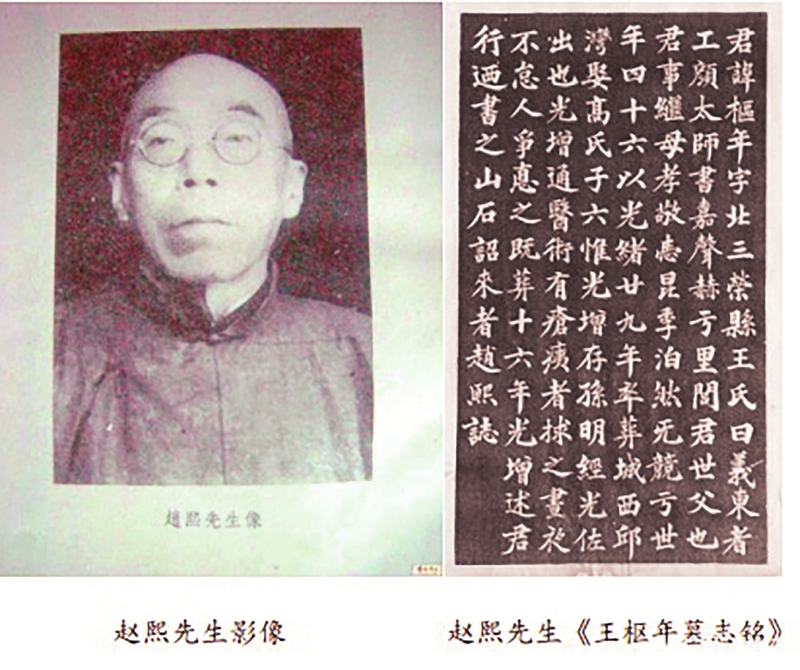 趙熙先生像
君諱樞年字北三榮縣王氏曰義東者
工顔太師書嘉聲赫亏里閭君世父也
君事繼母孝敬惠昆季泊然无競亏世
年四十六以光緒廿九年卒葬城西邱
灣娶高氏子六惟光增存孫明經光佐
出也光增通醫術有瘡痍者捄之晝夜
不怠人爭惪之既葬十六年光增述君
行迺書之山石詔來者趙熙誌
赵熙先生影像
赵熙先生《王枢年墓志铭》